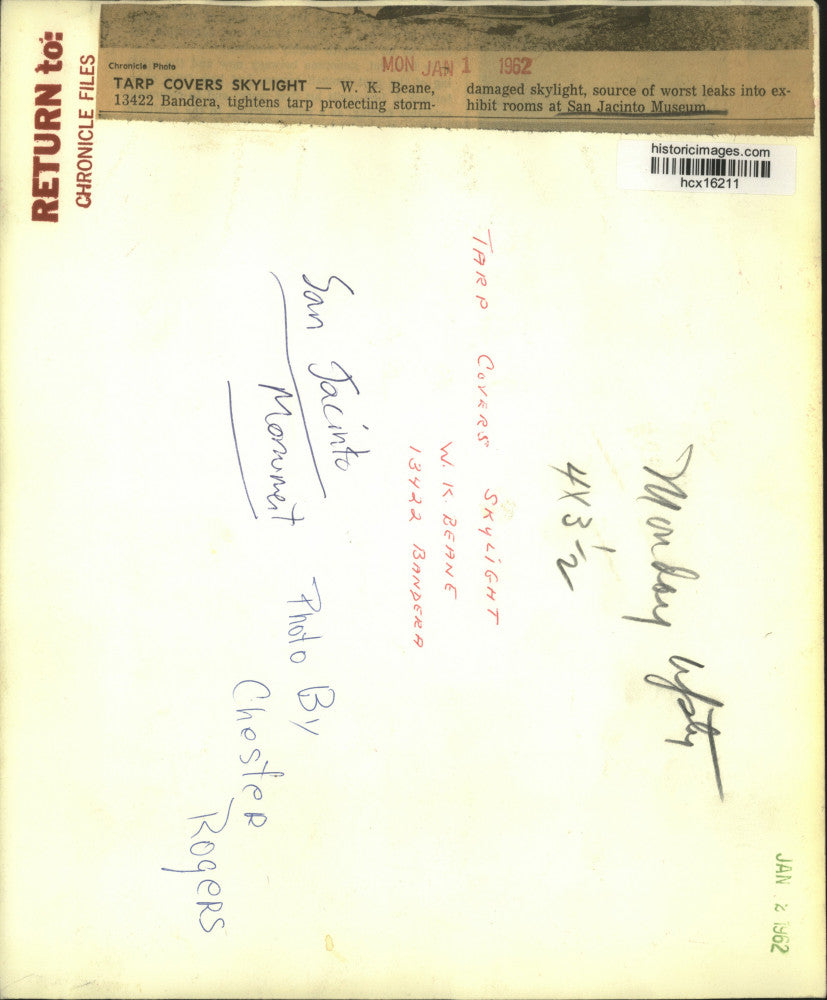 RETURN to:
CHRONICLE FILES
Chronicle Photo
MON JAN 1 1962
TARP COVERS SKYLIGHT — W. K. Beane,
13422 Bandera, tightens tarp protecting storm-
damaged skylight, source of worst leaks into ex-
hibit rooms at San Jacinto Museum.
historicimages.com
hcx16211
Monday
4x3 1/2
TARP COVERS SKYLIGHT
W. K. BEANE
13422 BANDERA
San Jacinto
Monument
Photo By
Chester
Rogers
JAN 2 1962